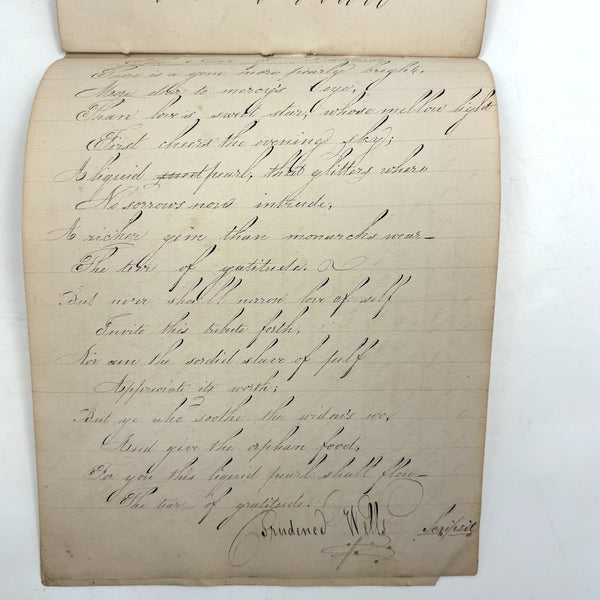 There is a gem more pearly bright,
More dear to mercy's eye,
Than love's sweet star, whose mellow light
First cheers the evening sky;
A liquid pearl, that glitters where
No sorrows now intrude,
A richer gem than monarchs wear—
The tear of gratitude.
But ne'er shall narrow love of self
Invite this tribute forth,
Nor can the sordid slave of pelf
Appreciate its worth;
But ye who soothe the widow's wo,
And give the orphan food,
For you this liquid pearl shall flow—
The tear of gratitude.
Wells Scripsit